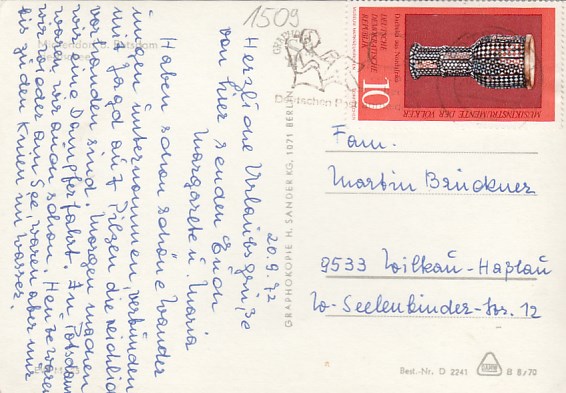 1509
Herzliche Urlaubsgrüße
von hier senden Euch
Margarete u. Maria
20.9.72
Haben schon schöne Wander
ungen unternommen, verbunden
mit Jagd auf Pilzen die reichlich
vorhanden sind. Morgen machen
wir eine Dampferfahrt. In Potsdam
waren wir auch schon. Heute waren
wir wieder am See, waren aber nur
bis zu den Knien im Wasser.
GRAPHOKOPIE H. SANDER KG, 1071 BERLIN
MUSIKINSTRUMENTE DER VÖLKER
Darbuka aus Nordafrika
DEUTSCHE
DEMOKRATISCHE
REPUBLIK
10
Fam.
Martin Brückner
9533 Wilkau-Haßlau
W-Seelenbinder-Str. 12
Best.-Nr. D 2241
B 8/70